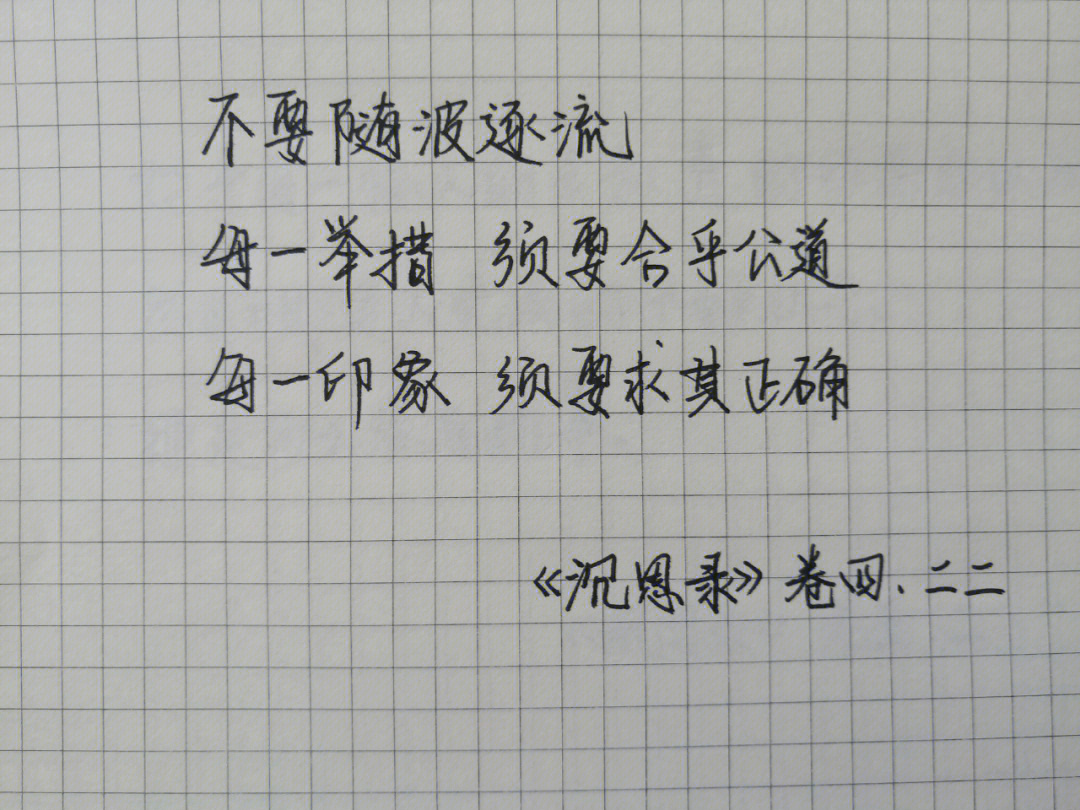 不要随波逐流
每一举措 须要合乎公道
每一印象 须要求其正确
《沉思录》卷四、二二